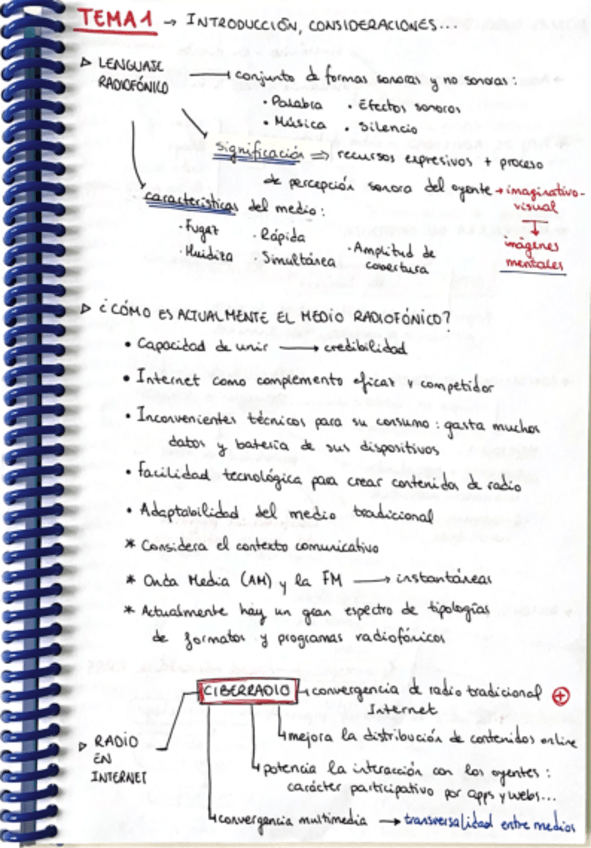 TEMA 1 → INTRODUCCIÓN, CONSIDERACIONES...
▷ LENGUAJE RADIOFÓNICO → conjunto de formas sonoras y no sonoras:
· Palabra · Efectos sonoros
· Música · Silencio
Significación ⇒ recursos expresivos + proceso
de percepción sonora del oyente → imaginativo-visual
↓
imágenes mentales
características del medio:
· Fugaz · Rápida · Amplitud de cobertura
· Huidiza · Simultánea
▷ ¿CÓMO ES ACTUALMENTE EL MEDIO RADIOFÓNICO?
• Capacidad de unir → credibilidad
• Internet como complemento eficaz y competidor
• Inconvenientes técnicos para su consumo: gasta muchos
datos y batería de sus dispositivos
• Facilidad tecnológica para crear contenido de radio
• Adaptabilidad del medio tradicional
* Considera el contexto comunicativo
* Onda Media (AM) y la FM → instantáneas
* Actualmente hay un gran espectro de tipologías
de formatos y programas radiofónicos
▷ RADIO EN INTERNET
CIBERRADIO → convergencia de radio tradicional +
Internet
mejora la distribución de contenidos online
potencia la interacción con los oyentes:
carácter participativo por apps y webs...
convergencia multimedia → transversalidad entre medios